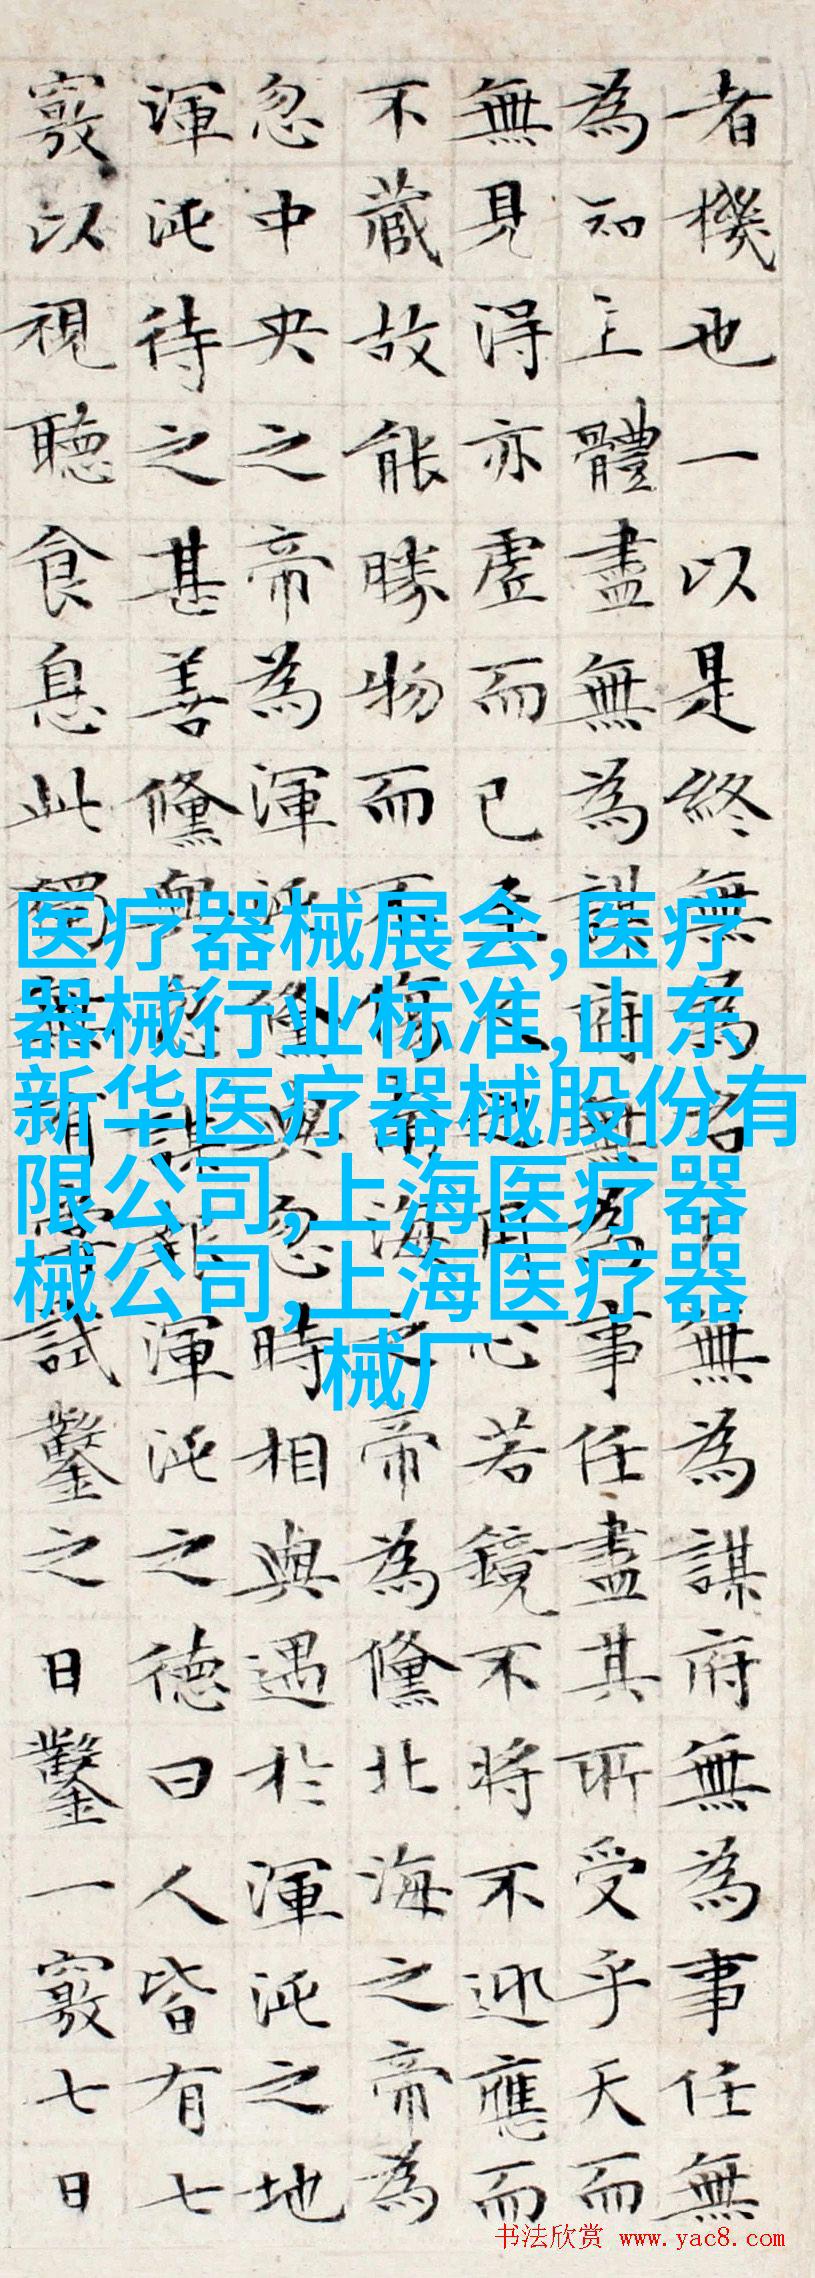 者機也一以是終無為名尸無為謀府無為事任無
為知主體盡無為謀府無為事任盡其所受乎天而
無見得亦虛而已至人之用心若鏡不將不迎應而
不藏故能勝物而不傷南海之帝為儵北海之帝為
忽中央之帝為渾沌儵與忽時相與遇於渾沌之地
渾沌待之甚善儵與忽謀報渾沌之德曰人皆有七
竅以視聽食息此獨無有嘗試鑿之日鑿一竅七日
医疗器械展会,医疗
器械行业标准,山东
新华医疗器械股份有
限公司,上海医疗器
械公司,上海医疗器
械厂
书法欣赏 www.yac8.com